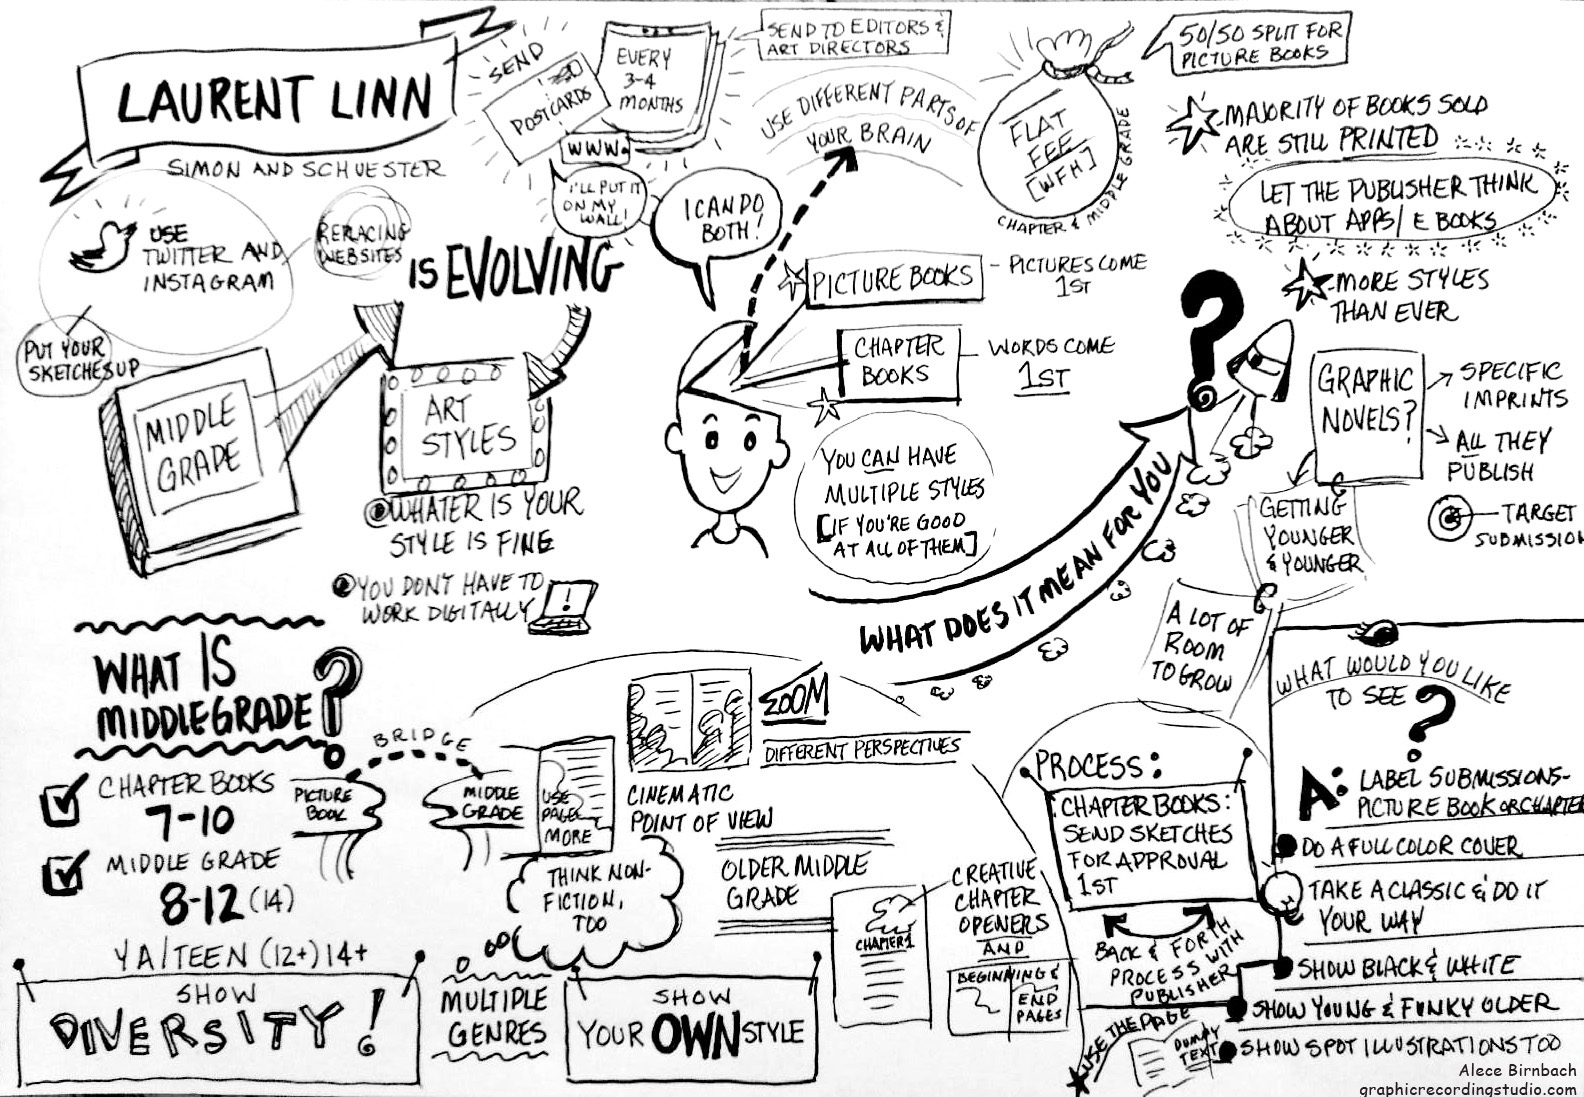 LAURENT LINN
SIMON AND SCHUESTER
SEND
POSTCARDS
EVERY
3-4
MONTHS
WWW.
I'LL PUT IT
ON MY
WALL!
SEND TO EDITORS &
ART DIRECTORS
USE DIFFERENT PARTS OF
YOUR BRAIN
I CAN DO
BOTH!
FLAT
FEE
[WFH]
CHAPTER & MIDDLE GRADE
50/50 SPLIT FOR
PICTURE BOOKS
MAJORITY OF BOOKS SOLD
ARE STILL PRINTED
LET THE PUBLISHER THINK
ABOUT APPS/ E BOOKS
MORE STYLES
THAN EVER
USE
TWITTER AND
INSTAGRAM
REPLACING
WEBSITES
PUT YOUR
SKETCHES UP
MIDDLE
GRADE
IS EVOLVING
ART
STYLES
WHATER IS YOUR
STYLE IS FINE
YOU DON'T HAVE TO
WORK DIGITALLY
!
PICTURE BOOKS - PICTURES COME
1ST
CHAPTER
BOOKS
WORDS COME
1ST
YOU CAN HAVE
MULTIPLE STYLES
[IF YOU'RE GOOD
AT ALL OF THEM]
WHAT DOES IT MEAN FOR YOU
?
GRAPHIC
NOVELS?
SPECIFIC
IMPRINTS
ALL THEY
PUBLISH
TARGET
SUBMISSION
GETTING
YOUNGER
& YOUNGER
A LOT OF
ROOM
TO GROW
WHAT IS
MIDDLEGRADE?
CHAPTER BOOKS
7-10
MIDDLE GRADE
8-12 (14)
YA/TEEN (12+) 14+
SHOW
DIVERSITY!
BRIDGE
PICTURE
BOOK
MIDDLE
GRADE
USE
PAGES
MORE
ZOOM
DIFFERENT PERSPECTIVES
CINEMATIC
POINT OF VIEW
THINK NON-
FICTION,
TOO
OLDER MIDDLE
GRADE
MULTIPLE
GENRES
SHOW
YOUR OWN STYLE
CHAPTER 1
CREATIVE
CHAPTER
OPENERS
AND
BEGINNING &
END
PAGES
PROCESS:
CHAPTER BOOKS:
SEND SKETCHES
FOR APPROVAL
1ST
BACK & FORTH
PROCESS WITH
PUBLISHER
USE THE PAGE
DUMMY
TEXT
WHAT WOULD YOU LIKE
TO SEE ?
A: LABEL SUBMISSIONS-
PICTURE BOOK OR CHAPTER
DO A FULL COLOR COVER
TAKE A CLASSIC & DO IT
YOUR WAY
SHOW BLACK & WHITE
SHOW YOUNG & FUNKY OLDER
SHOW SPOT ILLUSTRATIONS TOO
Alece Birnbach
graphicrecordingstudio.com